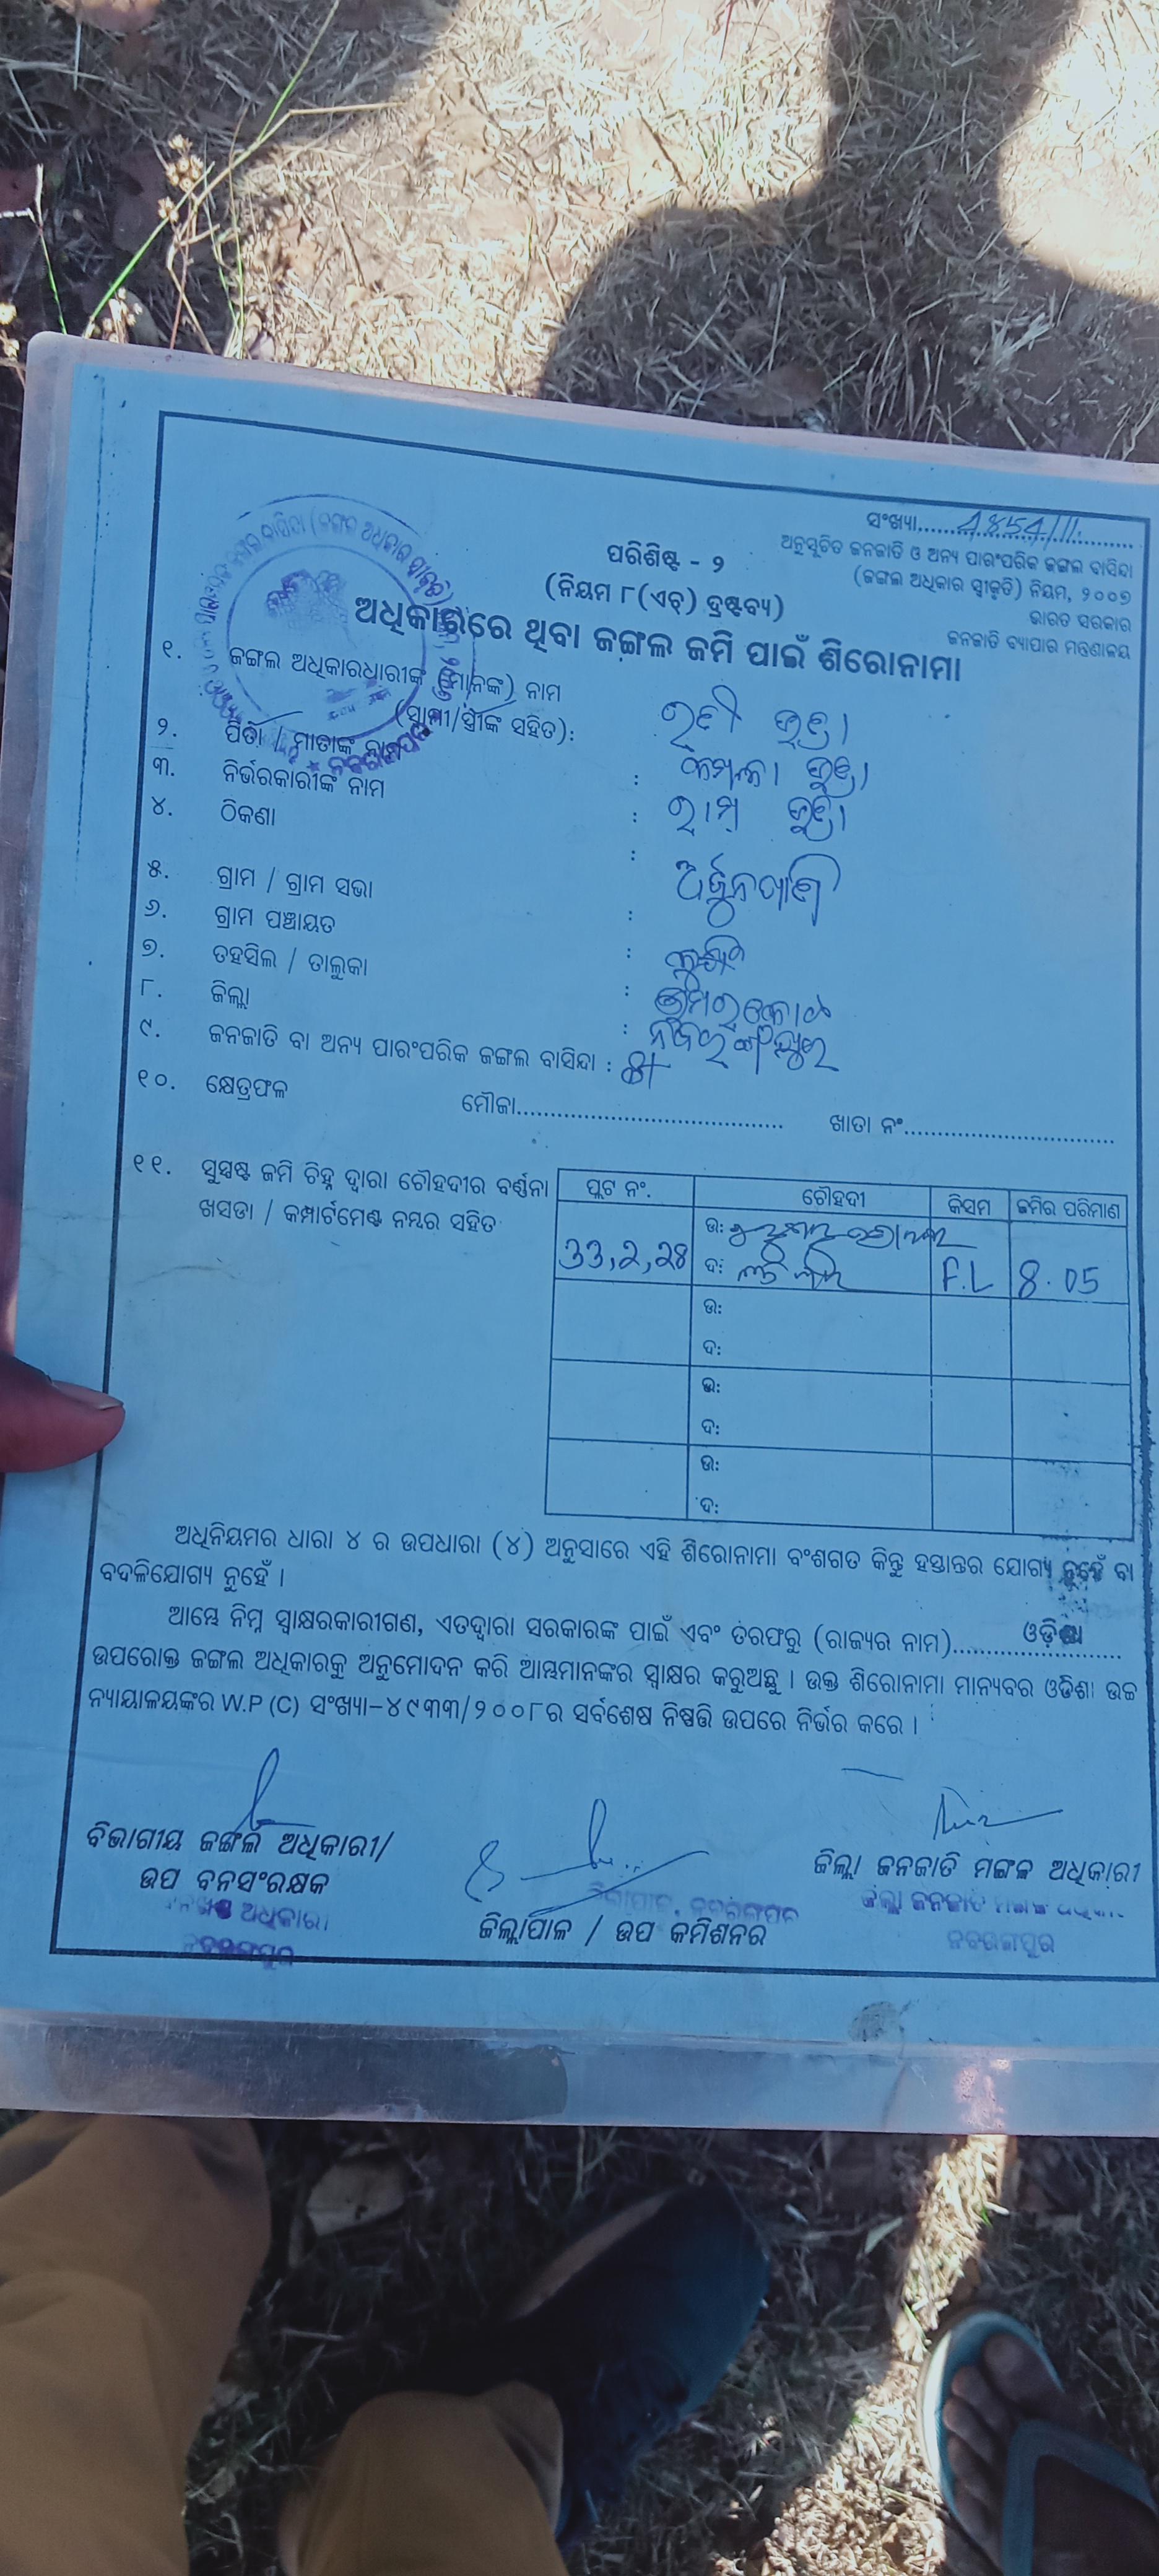 ସଂଖ୍ୟା......4854/11.............
ଅନୁସୂଚିତ ଜନଜାତି ଓ ଅନ୍ୟ ପାରଂପରିକ ଜଙ୍ଗଲ ବାସିନ୍ଦା
(ଜଙ୍ଗଲ ଅଧିକାର ସ୍ୱୀକୃତି) ନିୟମ, ୨୦୦୭
ଭାରତ ସରକାର
ଜନଜାତି ବ୍ୟାପାର ମନ୍ତ୍ରଣାଳୟ
ପରିଶିଷ୍ଟ - ୨
(ନିୟମ ୮(ଏଚ୍) ଦ୍ରଷ୍ଟବ୍ୟ)
ଅଧିକାରରେ ଥିବା ଜଙ୍ଗଲ ଜମି ପାଇଁ ଶିରୋନାମା
୧. ଜଙ୍ଗଲ ଅଧିକାରଧାରୀଙ୍କ (ମାନଙ୍କ) ନାମ
(ସ୍ୱାମୀ/ସ୍ତ୍ରୀଙ୍କ ସହିତ):
୨. ପିତା / ମାତାଙ୍କ ନାମ : କମଳା
୩. ନିର୍ଭରକାରୀଙ୍କ ନାମ : ରାମ
୪. ଠିକଣା :
୫. ଗ୍ରାମ / ଗ୍ରାମ ସଭା :
୬. ଗ୍ରାମ ପଞ୍ଚାୟତ :
୭. ତହସିଲ / ତାଲୁକା : ଉମରକୋଟ
୮. ଜିଲ୍ଲା : ନବରଙ୍ଗପୁର
୯. ଜନଜାତି ବା ଅନ୍ୟ ପାରଂପରିକ ଜଙ୍ଗଲ ବାସିନ୍ଦା :
୧୦. କ୍ଷେତ୍ରଫଳ ମୌଜା........................................ ଖାତା ନଂ................................
୧୧. ସୁସ୍ପଷ୍ଟ ଜମି ଚିହ୍ନ ଦ୍ୱାରା ଚୌହଦୀର ବର୍ଣ୍ଣନା
ଖସଡା / କମ୍ପାର୍ଟମେଣ୍ଟ ନମ୍ବର ସହିତ
ପ୍ଲଟ ନଂ. ଚୌହଦୀ କିସମ ଜମିର ପରିମାଣ
ଉ:
ଦ: F.L
ଉ:
ଦ:
ଉ:
ଦ:
ଉ:
ଦ:
ଅଧିନିୟମର ଧାରା ୪ ର ଉପଧାରା (୪) ଅନୁସାରେ ଏହି ଶିରୋନାମା ବଂଶଗତ କିନ୍ତୁ ହସ୍ତାନ୍ତର ଯୋଗ୍ୟ ନୁହେଁ ବା
ବଦଳିଯୋଗ୍ୟ ନୁହେଁ ।
ଆମ୍ଭେ ନିମ୍ନ ସ୍ୱାକ୍ଷରକାରୀଗଣ, ଏତଦ୍ୱାରା ସରକାରଙ୍କ ପାଇଁ ଏବଂ ତରଫରୁ (ରାଜ୍ୟର ନାମ)..........ଓଡ଼ିଶା..........
ଉପରୋକ୍ତ ଜଙ୍ଗଲ ଅଧିକାରକୁ ଅନୁମୋଦନ କରି ଆମ୍ଭମାନଙ୍କର ସ୍ୱାକ୍ଷର କରୁଅଛୁ । ଉକ୍ତ ଶିରୋନାମା ମାନ୍ୟବର ଓଡିଶା ଉଚ୍ଚ
ନ୍ୟାୟାଳୟଙ୍କର W.P (C) ସଂଖ୍ୟା-୪୯୩୩/୨୦୦୮ର ସର୍ବଶେଷ ନିଷ୍ପତ୍ତି ଉପରେ ନିର୍ଭର କରେ ।
ବିଭାଗୀୟ ଜଙ୍ଗଲ ଅଧିକାରୀ/
ଉପ ବନସଂରକ୍ଷକ
ଜିଲ୍ଲାପାଳ / ଉପ କମିଶନର
ଜିଲ୍ଲା ଜନଜାତି ମଙ୍ଗଳ ଅଧିକାରୀ
ଜିଲ୍ଲା ଜନଜାତି ମଙ୍ଗଳ
ନବରଙ୍ଗପୁର